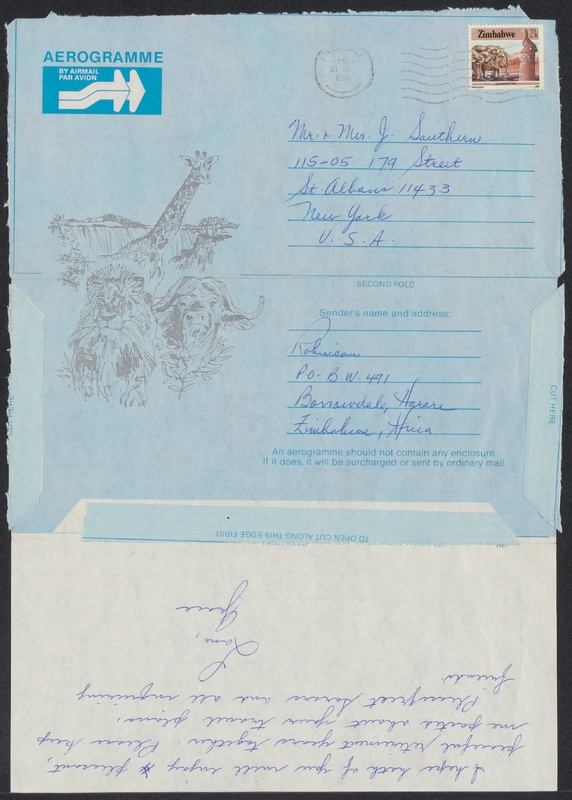 AEROGRAMME
BY AIRMAIL
PAR AVION
Zimbabwe
Mr. & Mrs. J. Southern
115-05 179 Street
St. Albans 11433
New York
U. S. A.
SECOND FOLD
Sender's name and address:
Robinson
P.O. B.W. 491
Borrowdale, Harare
Zimbabwe, Africa
CUT HERE
An aerogramme should not contain any enclosure.
If it does, it will be surcharged or sent by ordinary mail.
TO OPEN CUT ALONG THIS EDGE FIRST
I hope both of you will enjoy pleasant,
peaceful retirement years together. Please keep
me posted about your travel plans.
Please greet and all inquiring
friends.
Love,
Grace